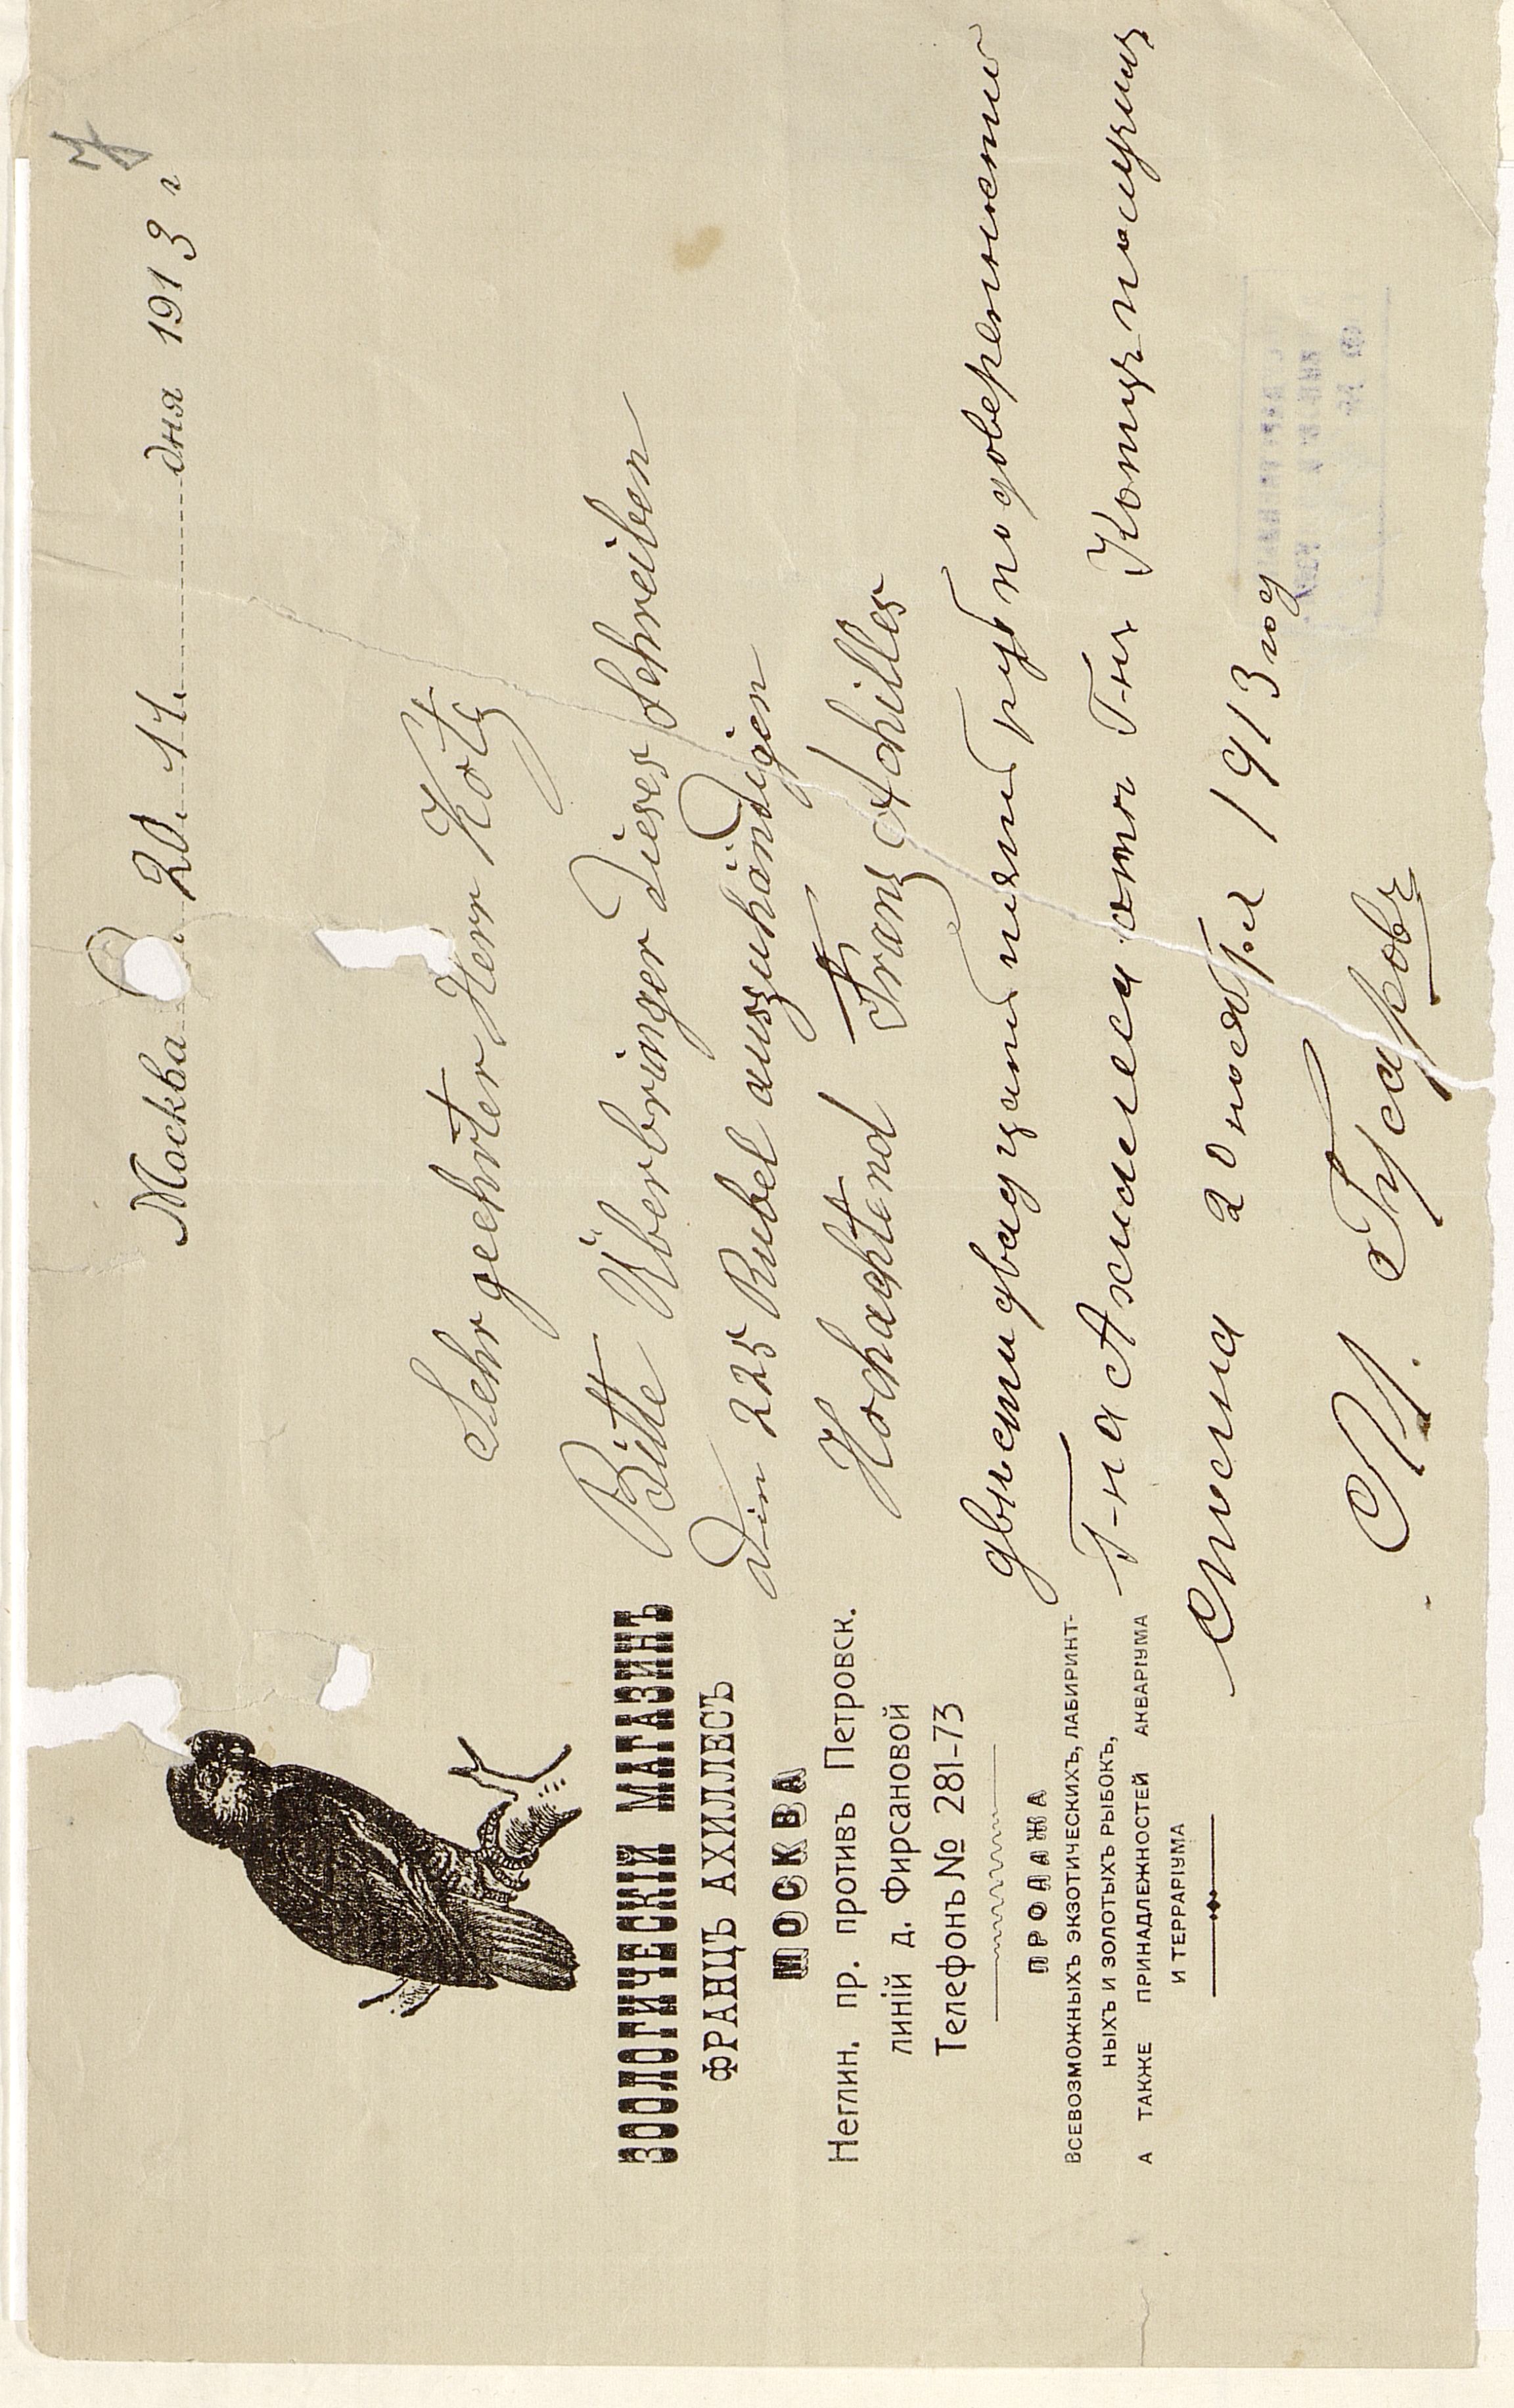 Москва 20. 11. дня 1913 г
7
ЗООЛОГИЧЕСКІЙ МАГАЗИНЪ
ФРАНЦЪ АХИЛЛЕСЪ
МОСКВА
Неглин. пр. противъ Петровск.
линій д. Фирсановой
Телефонъ № 281-73
ПРОДАЖА
ВСЕВОЗМОЖНЫХЪ ЭКЗОТИЧЕСКИХЪ, ЛАБИРИНТ-
НЫХЪ И ЗОЛОТЫХЪ РЫБОКЪ,
А ТАКЖЕ ПРИНАДЛЕЖНОСТЕЙ АКВАРІУМА
И ТЕРРАРІУМА
Sehr geehrter Herr Kotz
Bitte Überbringer dieses Schreiben
die 225 Rubel auszuhändigen
Hochachtend Franz Achilles
двести двадцать пять руб по доверенности
Г-на Ахиллеса отъ Г-на Котцъ получилъ
сполна 20 ноября 1913 год
Гусаровъ